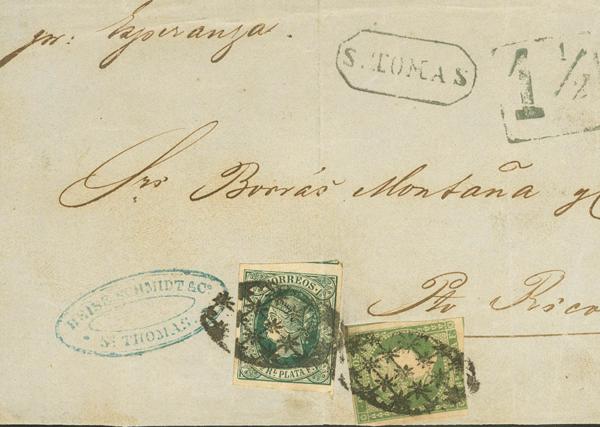 pr: Esperanza.
S. TOMAS
1 1/2
Srs Borrás Montaña y C
Pto Rico
HEISE SCHMIDT & Co
St THOMAS
CORREOS
Rl PLATA F.